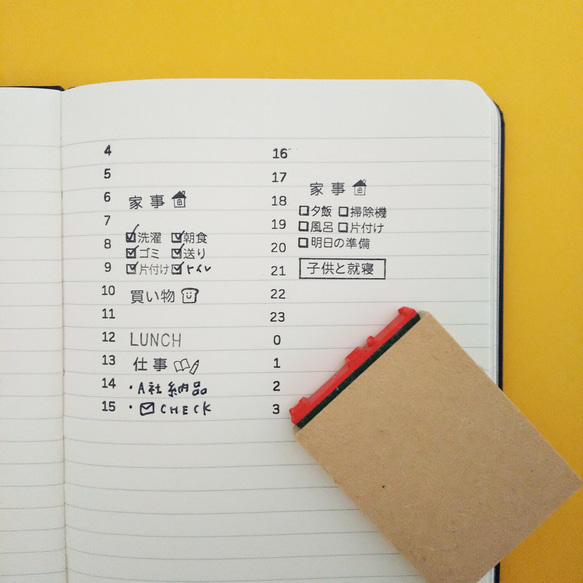 4
5
6 家事
7
8 洗濯 朝食
ゴミ 送り
9 片付け トイレ
10 買い物
11
12 LUNCH
13 仕事
14 ・A社納品
15 ・CHECK
16
17
家事
18 夕飯 掃除機
19 風呂 片付け
20 明日の準備
21 子供と就寝
22
23
0
1
2
3